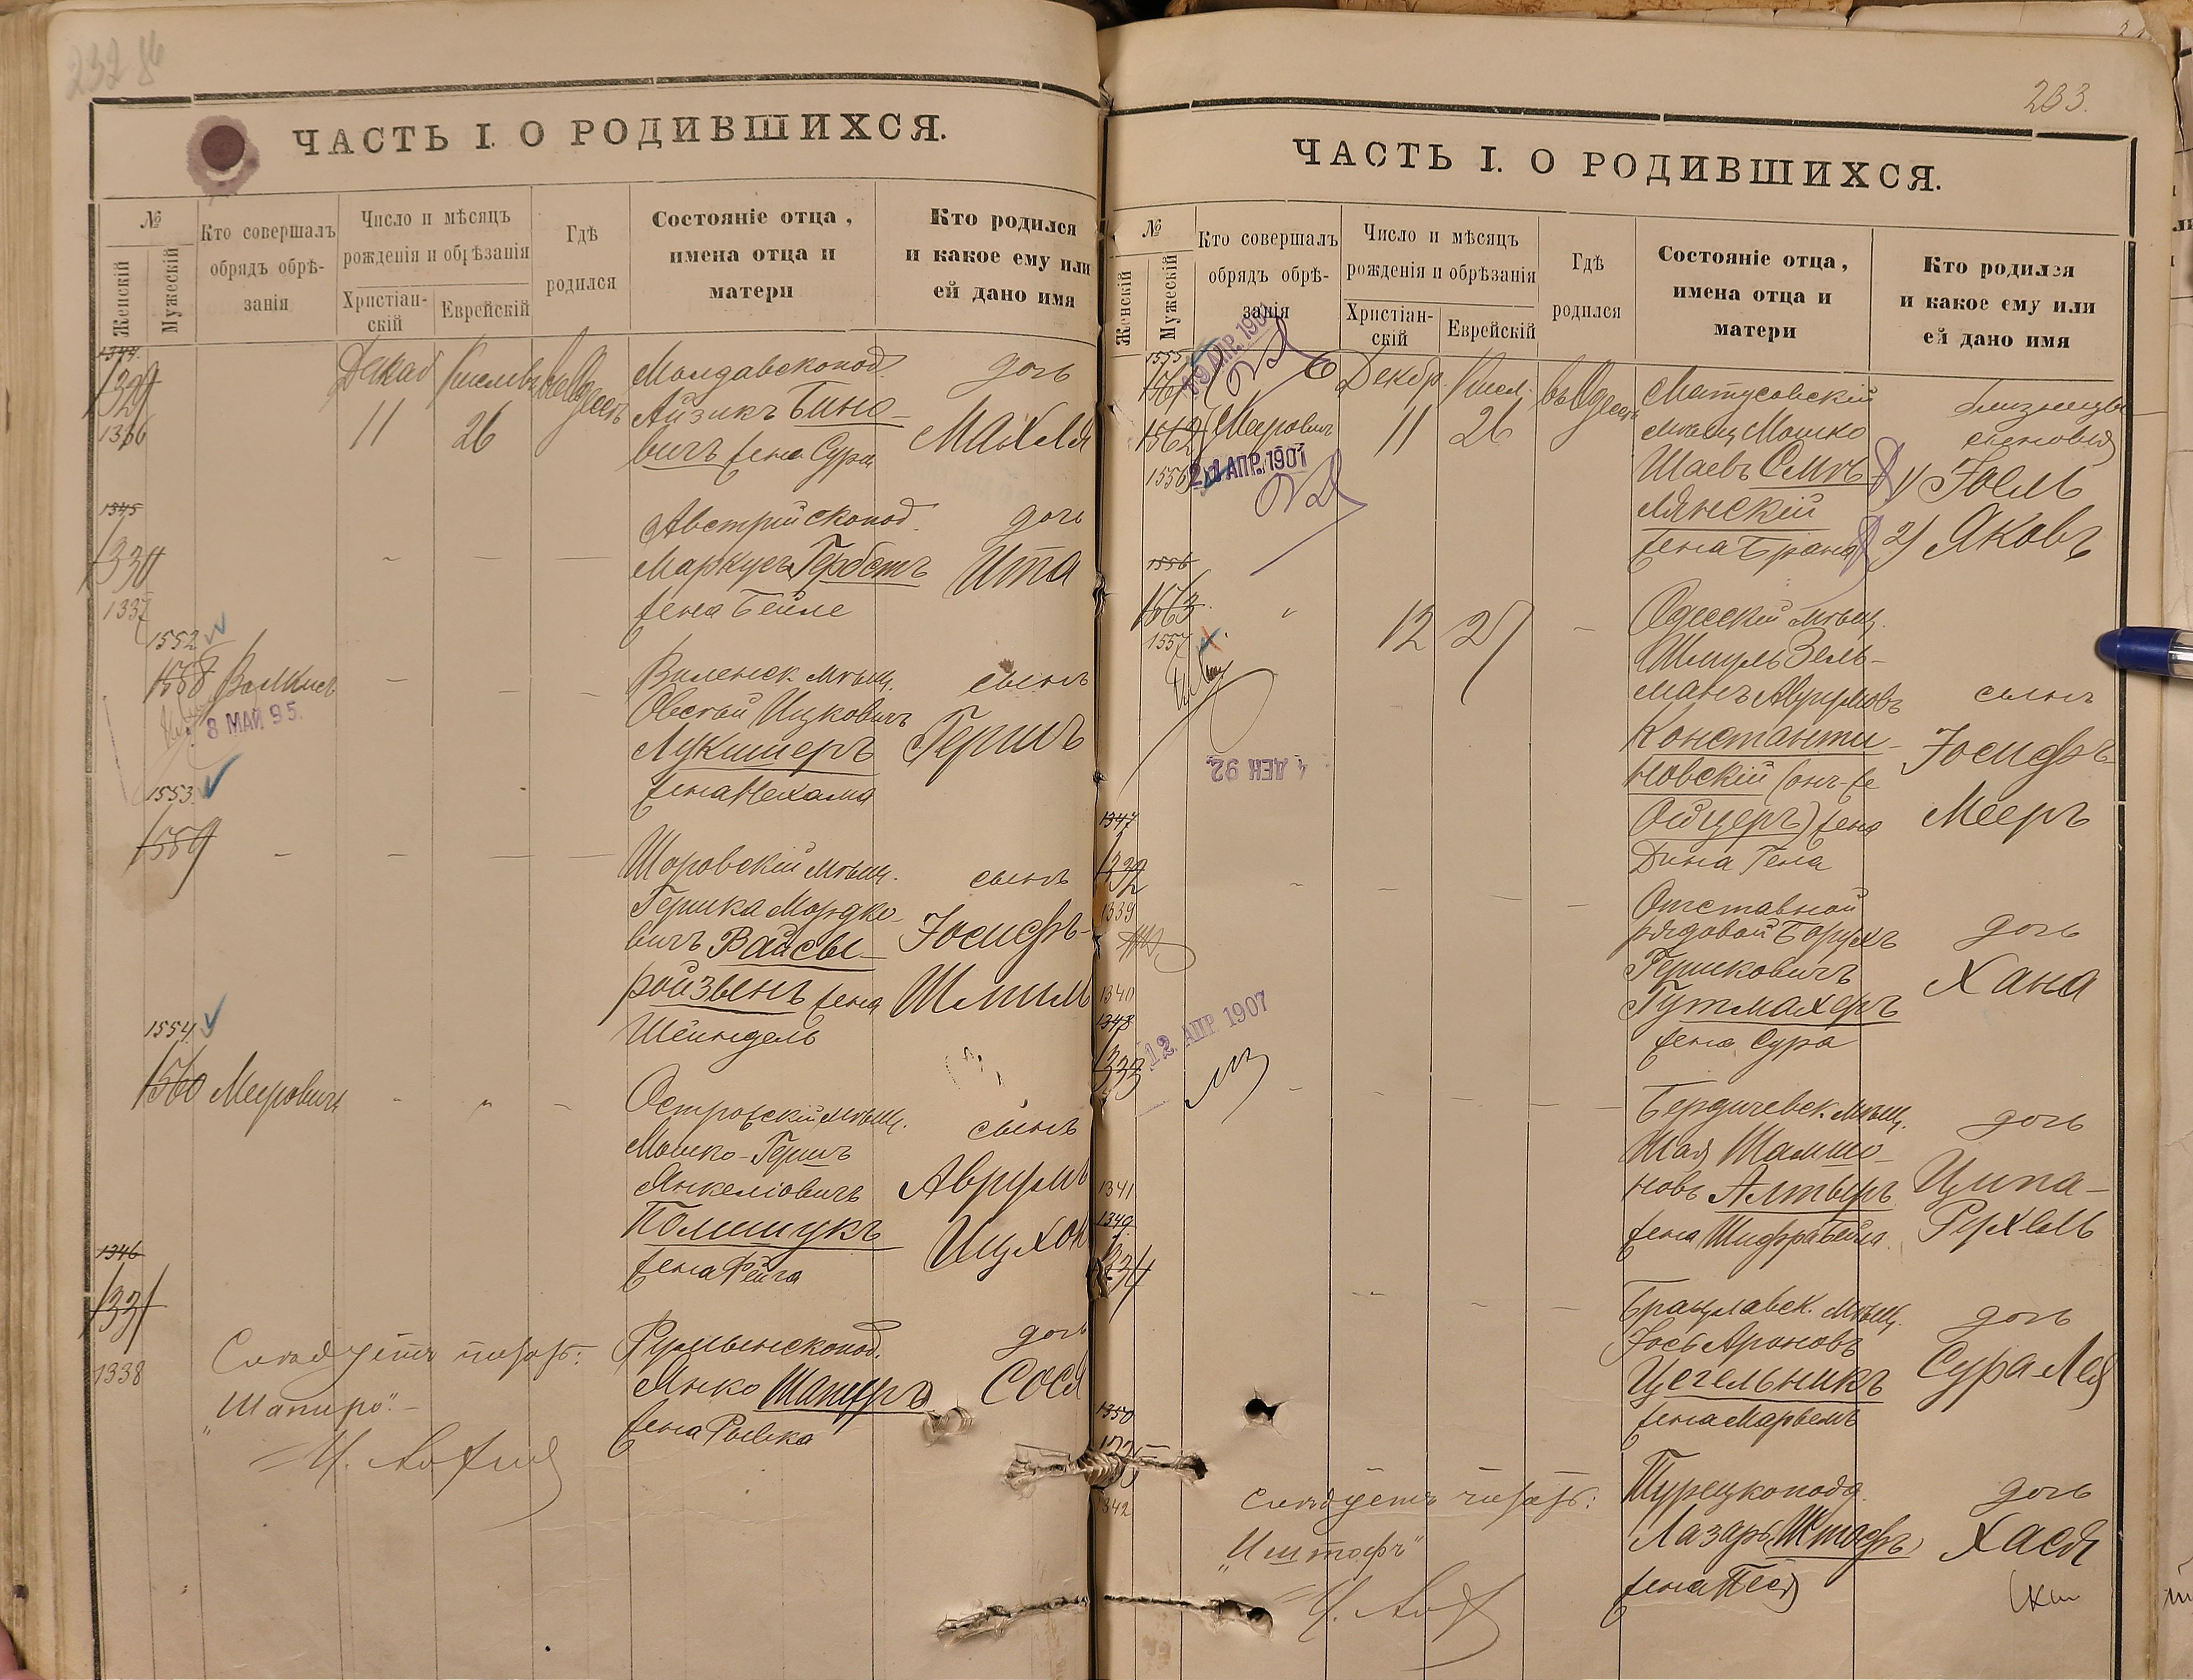 ЧАСТЬ I. О РОДИВШИХСЯ.
№
Женскій
Мужескій
Кто совершалъ
обрядъ обрѣ-
занія
Число и мѣсяцъ
рожденія и обрѣзанія
Христіан-
скій
Еврейскій
Гдѣ
родился
Состояніе отца,
имена отца и
матери
Кто родился
и какое ему или
ей дано имя
1344
1329
1336
Декаб
11
Кислевъ
26
въ Одессѣ
Молдавскопод.
Айзикъ Бино-
вичъ жена Сура
дочь
Махля
1345
1330
1337
Австрійскопод.
Маркусъ Гербстъ
жена Бейле
дочь
Ита
1552
1558
8 МАЙ 95.
Виленск. мѣщ.
Овсѣй Ицковичъ
Лукишеръ
жена Нехама
сынъ
Гершъ
1553
1559
Шаровскій мѣщ.
Гершка Мордко-
вичъ Вайсы-
ройзенъ жена
Шейндель
сынъ
Іосифъ-
Шмиль
1554
1560
Меровичъ
Островскій мѣщ.
Мошко-Гершъ
Янкеліовичъ
Полищукъ
жена Фейга
сынъ
Аврумъ
Ицхок
1346
1331
1338
Слѣдуетъ читать:
"Шапиро".-
Румынскопод.
Янко Шапиръ
жена Ривка
дочь
Сося
233.
ЧАСТЬ I. О РОДИВШИХСЯ.
№
Женскій
Мужескій
Кто совершалъ
обрядъ обрѣ-
занія
Число и мѣсяцъ
рожденія и обрѣзанія
Христіан-
скій
Еврейскій
Гдѣ
родился
Состояніе отца,
имена отца и
матери
Кто родился
и какое ему или
ей дано имя
1555
1561
1562
1556
Меровичъ
АПР. 1901
Декбр.
11
Кисл.
26
въ Одессѣ
Матусовскій
мѣщ Мошко
Шаевъ Смѣ-
лянскій
жена Брана
близнецы
сыновья
1) Іоель
2) Яковъ
1556
1563
1557
12
27
4 ДЕК 92.
Одесскій мѣщ.
Шмуль Зель-
манъ Аврумовъ
Константи-
новскій (онъ-же
Ойцеръ) жена
Дина Гена
сынъ
Іосифъ-
Мееръ
1347
1332
1339
Отставной
рядовой Борухъ
Гершковичъ
Гутмахеръ
жена Сура
дочь
Хана
1340
1348
1333
12. АПР. 1907
Бердичевск. мѣщ.
Шая Шамшо-
новъ Алтыръ
жена Шифра Бейла
дочь
Ципа-
Рухель
1341
1349
1334
Брацлавск. мѣщ.
Іось Ароновъ
Цегельникъ
жена Марьемъ
дочь
Сура-Лея
1350
1335
1342
Слѣдуетъ читать:
"Иштофъ"
Турецкопод.
Лазарь Штофъ
жена Песя
дочь
Хася